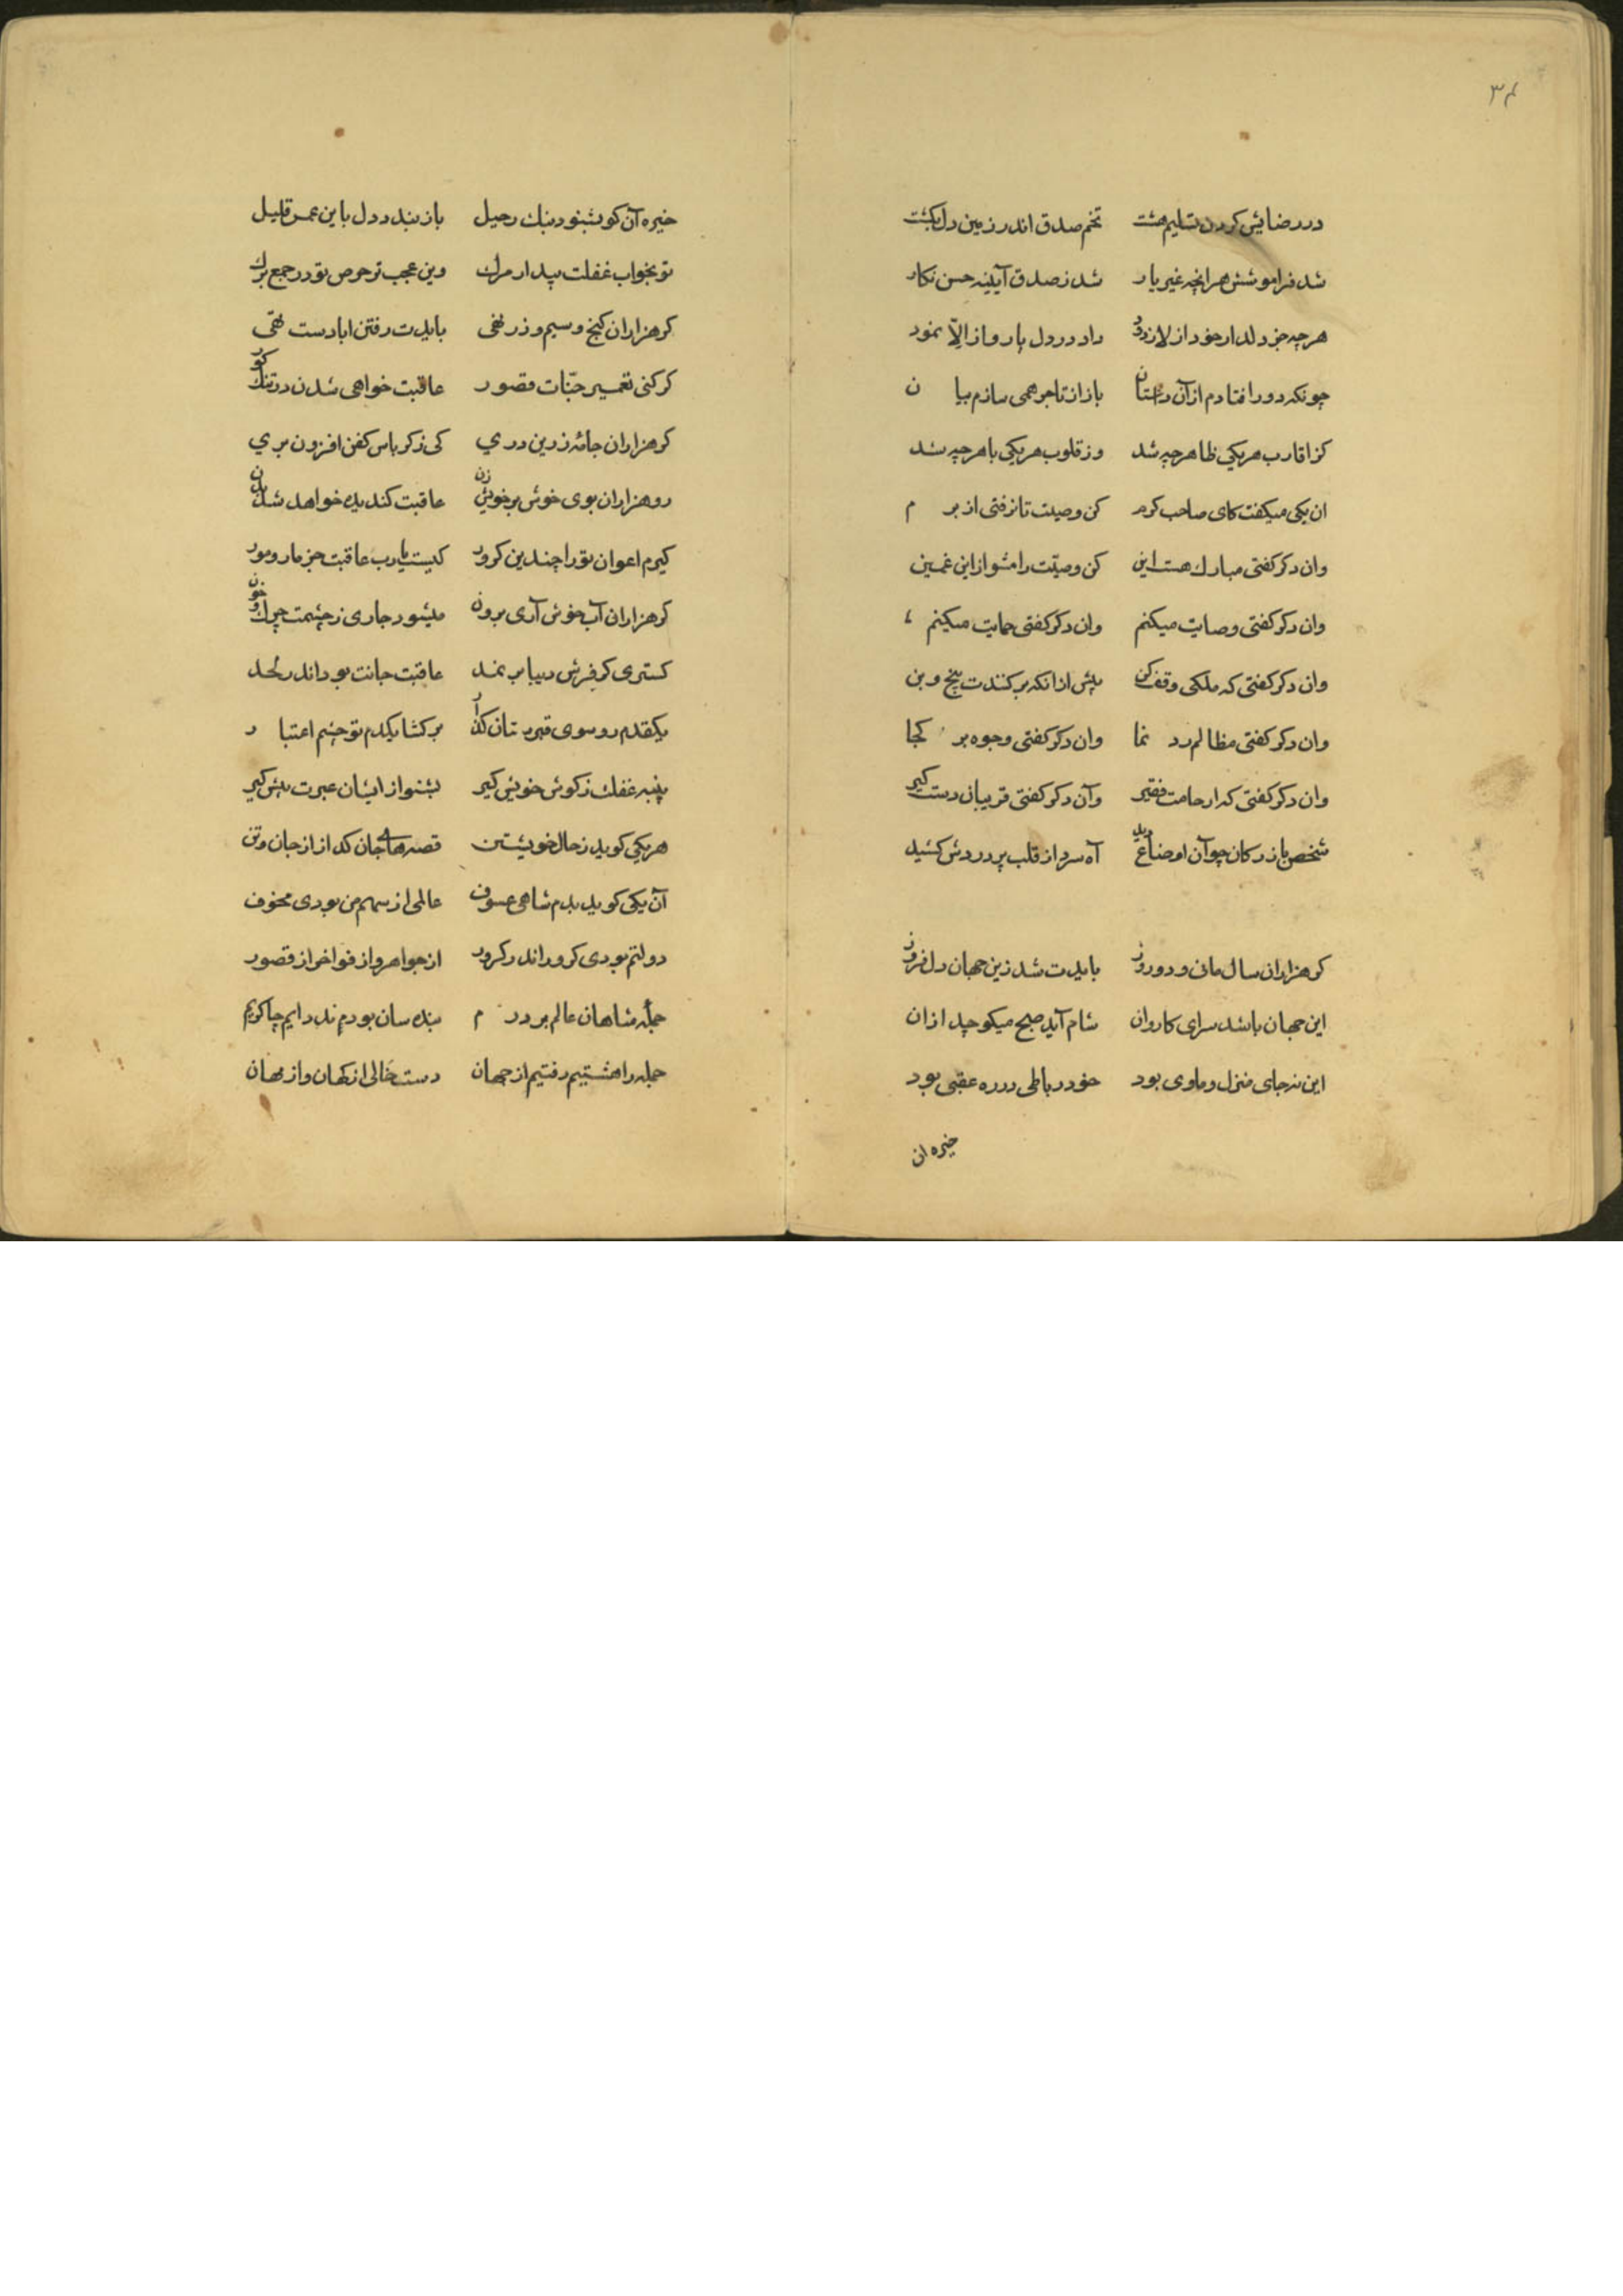 ۳۴
در رضایش کردن تسلیم هشت تخم صدق اندر زمین دل بکشت
شد فراموشش هر انچه غیر یار شد ز صدق آیینه حسن نکار
هرچه جز دلدار خود از لا زدود داد در دل یار و از الّا نمود
چونکه دور افتادم از آن داستان باز از تاجر همی سازم بیان
کز اقارب هریکی ظاهر چه شد وز قلوب هریکی باهر چه شد
ان یکی میکفت کای صاحب کرم کن وصیت تا نرفتی از برم
وان دکر کفتی مبارک هست این کن وصیّت را مشو از این غمین
وان دکر کفتی وصایت میکنم وان دکر کفتی حمایت میکنم
وان دکر کفتی که ملکی وقف کن پیش از انکه برکنندت بیخ و بن
وان دکر کفتی مظالم رد نما وان دکر کفتی وجوه بر کجا
وان دکر کفتی که ارحامت فقیر وآن دکر کفتی قریبان دست کیر
شخص بازرکان چو آن اوضاع دید آه سرد از قلب پر دردش کشید
کر هزاران سال مانی و دو روز بایدت شد زین جهان دل فروز
این جهان باشد سرای کاروان شام آید صبح میکوچد ازان
این نه جای منزل و ماوی بود خود رباطی در ره عقبی بود
خیره ان
خیره آن کو بشنود بنک رحیل باز بندد دل باین عمر قلیل
تو بخواب غفلت بیدار مرک وین عجب تر حرص تو در جمع برک
کر هزاران کنج و سیم و زر نهی بایدت رفتن ابا دست تهی
کر کنی تعمیر جنّات قصور عاقبت خواهی شدن در تنک کور
کر هزاران جامه زرین دری کی ز کرباس کفن افزون بری
رو هزاران بوی خوش بر خویش زن عاقبت کندیده خواهد شد بدن
کیرم اعوان تو را چندین کرور کیست یارب عاقبت جز مار و مور
کر هزاران آب خوش آری برون میشود جاری ز چشمت چرک و خون
کستری کر فرش دیبا بر نمد عاقبت جانت بود اندر لحد
یکقدم رو سوی قبرستان کذار برکشا یکدم تو چشم اعتبار
پنبه غفلت ز کوش خویش کیر بشنو از ایشان عبرت پیش کیر
هریکی کوید ز حال خویشتن قصه های جان کداز از جان و تن
آن یکی کوید بدم شاهی عسوف عالمی از سهم من بودی مخوف
دولتم بودی کرور اندر کرور از جواهر و از فواخر از قصور
جمله شاهان عالم بر درم بنده سان بودم
جمله را هشتیم رفتیم از جهان دست خالی از کهان و از مهان